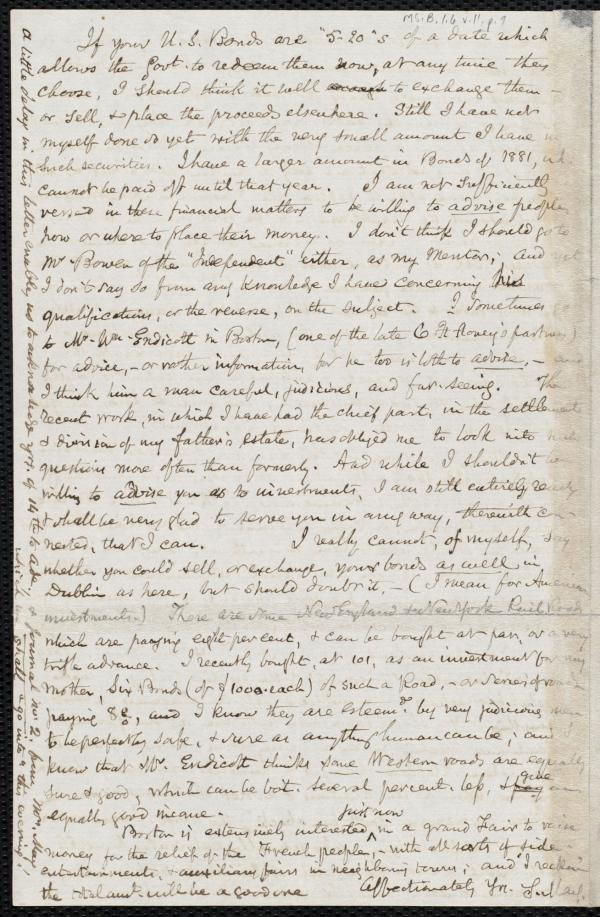 MS.B.1.6 v.11, p.9
If your U.S. Bonds are "5-20"s of a date which
allows the Govt. to redeem them now, at any time they
choose, I should think it well enough to exchange them -
or sell, & place the proceeds elsewhere. Still I have not
myself done so yet with the very small amount I have in
such securities. I have a larger amount in Bonds of 1881, wh.
cannot be paid off until that year. I am not sufficiently
versed in these financial matters to be willing to advise people
how or where to place their money. I don't think I should go to
Mr Bowen of the "Independent" either, as my Mentor; and yet
I don't say so from any knowledge I have concerning his
qualifications, or the reverse, on the subject. I sometimes go
to Mr. Wm. Endicott in Boston, (one of the late C. F. Hovey's partners)
for advice, - or rather information, for he too is loth to advise, - and
I think him a man careful, judicious, and far-seeing. The
recent work, in which I have had the chief part, in the settlement
& division of my father's estate, has obliged me to look into such
questions more often than formerly. And while I shouldn't be
willing to advise you as to investments, I am still entirely ready
& shall be very glad to serve you in any way, therewith con-
nected, that I can. I really cannot, of myself, say
whether you could sell, or exchange, your bonds as well in
Dublin as here, but should doubt it, - (I mean for American
investments.) There are some New England & New York Rail Roads
which are paying eight per cent, & can be bought at par, or a very
little advance. I recently bought, at 101, as an investment for my
mother, Six Bonds (of $1000. each) of such a Road, - or series of roads
paying 8%, and I know they are esteemd. by very judicious men
to be perfectly safe, & sure as anything human can be; and I
know that Mr. Endicott thinks some Western roads are equally
sure & good, which can be bot. several per cent. less, & pay give an
equally good income.
Boston is extensively interested just now in a grand Fair to raise
money for the relief of the French people, - with all sorts of side-
entertainments, & auxiliary fairs in neighboring towns; and I reckon
the total amt. will be a good one Affectionately Yr. S. May Jr.
A little delay in this letter enables us to acknowledge yrs. of 14th to Abby, & Journal no. 2. from Mr. May,
which we shall go into this evening!